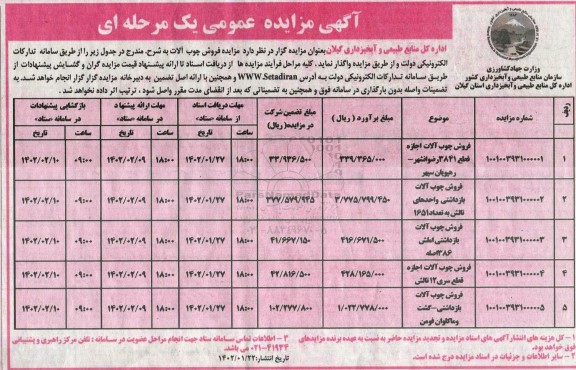 آگهی مزایده عمومی یک مرحله ای
وزارت جهادکشاورزی
سازمان منابع طبیعی و آبخیزداری کشور
اداره کل منابع طبیعی و آبخیزداری استان گیلان
اداره کل منابع طبیعی و آبخیزداری گیلان بعنوان مزایده گزار در نظر دارد مزایده فروش چوب آلات به شرح، مندرج در جدول زیر را از طریق سامانه تدارکات
الکترونیکی دولت و از طریق مزایده واگذار نماید. کلیه مراحل فرآیند مزایده ها از دریافت اسناد تا ارائه پیشنهاد قیمت مزایده گران و گشایش پیشنهادات از
طریق سامانه تدارکات الکترونیکی دولت به آدرس WWW.Setadiran و همچنین با ارائه اصل تضمین به دبیرخانه مزایده گزار انجام خواهد شد. به
تضمینات واصله بدون بارگذاری در سامانه فوق و همچنین به تضمیناتی که بعد از انقضای مدت مقرر واصل شود، ترتیب اثر داده نخواهد شد.
ردیف | شماره مزایده | موضوع | مبلغ برآورد (ریال) | مبلغ تضمین شرکت در مزایده (ریال) | مهلت دریافت اسناد از سامانه «ستاد» | مهلت ارائه پیشنهاد در سامانه «ستاد» | بازگشایی پیشنهادات در سامانه «ستاد»
ساعت | تاریخ | ساعت | تاریخ | ساعت | تاریخ
۱ | ۱۰۰۱۰۰۳۹۳۱۰۰۰۰۰۱ | فروش چوب آلات اجازه قطع ۳۸۴۱ رضوانشهر – رهپویان سپهر | ۳۳۹/۳۶۵/۰۰۰ | ۳۳/۹۳۶/۵۰۰ | ۱۸:۰۰ | ۱۴۰۲/۰۱/۲۷ | ۱۸:۰۰ | ۱۴۰۲/۰۲/۰۹ | ۰۹:۰۰ | ۱۴۰۲/۰۲/۱۰
۲ | ۱۰۰۱۰۰۳۹۳۱۰۰۰۰۰۲ | فروش چوب آلات بازداشتی واحدهای تالش به تعداد ۱۶۵۱ | ۳/۷۷۵/۷۹۹/۴۵۰ | ۳۷۷/۵۷۹/۹۴۵ | ۱۸:۰۰ | ۱۴۰۲/۰۱/۲۷ | ۱۸:۰۰ | ۱۴۰۲/۰۲/۰۹ | ۰۹:۰۰ | ۱۴۰۲/۰۲/۱۰
۳ | ۱۰۰۱۰۰۳۹۳۱۰۰۰۰۰۳ | فروش چوب آلات بازداشتی املش ۳۸۶ اصله | ۴۱۶/۶۷۱/۵۰۰ | ۴۱/۶۶۷/۱۵۰ | ۱۸:۰۰ | ۱۴۰۲/۰۱/۲۷ | ۱۸:۰۰ | ۱۴۰۲/۰۲/۰۹ | ۰۹:۰۰ | ۱۴۰۲/۰۲/۱۰
۴ | ۱۰۰۱۰۰۳۹۳۱۰۰۰۰۰۴ | فروش چوب آلات اجازه قطع سری ۱۲ تالش | ۴۲۸/۱۶۵/۰۰۰ | ۴۲/۸۱۶/۵۰۰ | ۱۸:۰۰ | ۱۴۰۲/۰۱/۲۷ | ۱۸:۰۰ | ۱۴۰۲/۰۲/۰۹ | ۰۹:۰۰ | ۱۴۰۲/۰۲/۱۰
۵ | ۱۰۰۱۰۰۳۹۳۱۰۰۰۰۰۵ | فروش چوب آلات بازداشتی – گشت وماکلوان فومن | ۱/۰۲۲/۷۷۸/۰۰۰ | ۱۰۲/۲۷۷/۸۰۰ | ۱۸:۰۰ | ۱۴۰۲/۰۱/۲۷ | ۱۸:۰۰ | ۱۴۰۲/۰۲/۰۹ | ۰۹:۰۰ | ۱۴۰۲/۰۲/۱۰
۱ – کل هزینه های انتشار آگهی های اسناد مزایده و تجدید مزایده حاضر به نسبت به عهده برنده مزایدهای
فوق خواهد بود.
۲ – سایر اطلاعات و جزئیات در اسناد مزایده درج شده است.
۳ – اطلاعات تماس سامانه ستاد جهت انجام مراحل عضویت در سامانه : تلفن مرکز راهبری و پشتیبانی
۴۱۹۳۴-۰۲۱ می باشد.
تاریخ انتشار: ۱۴۰۲/۰۱/۲۲